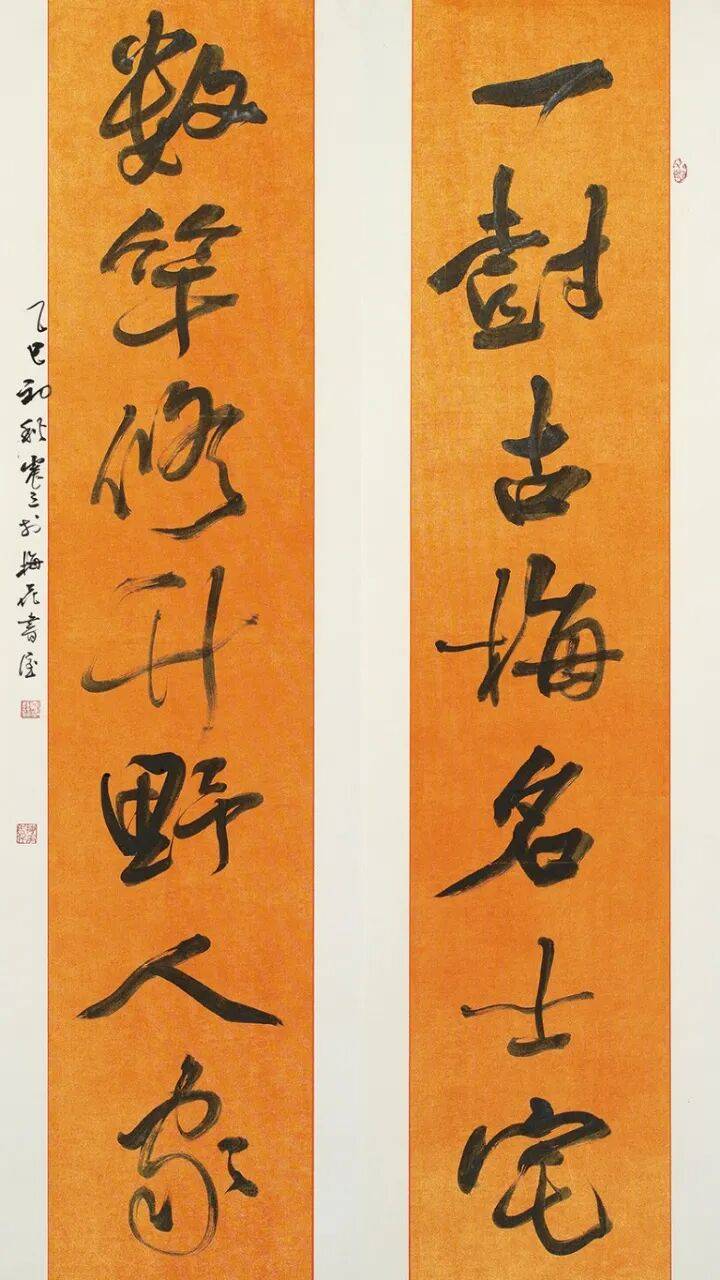 一尌古梅名士宅
数竿修竹野人家
乙巳初秋 三於梅花書屋